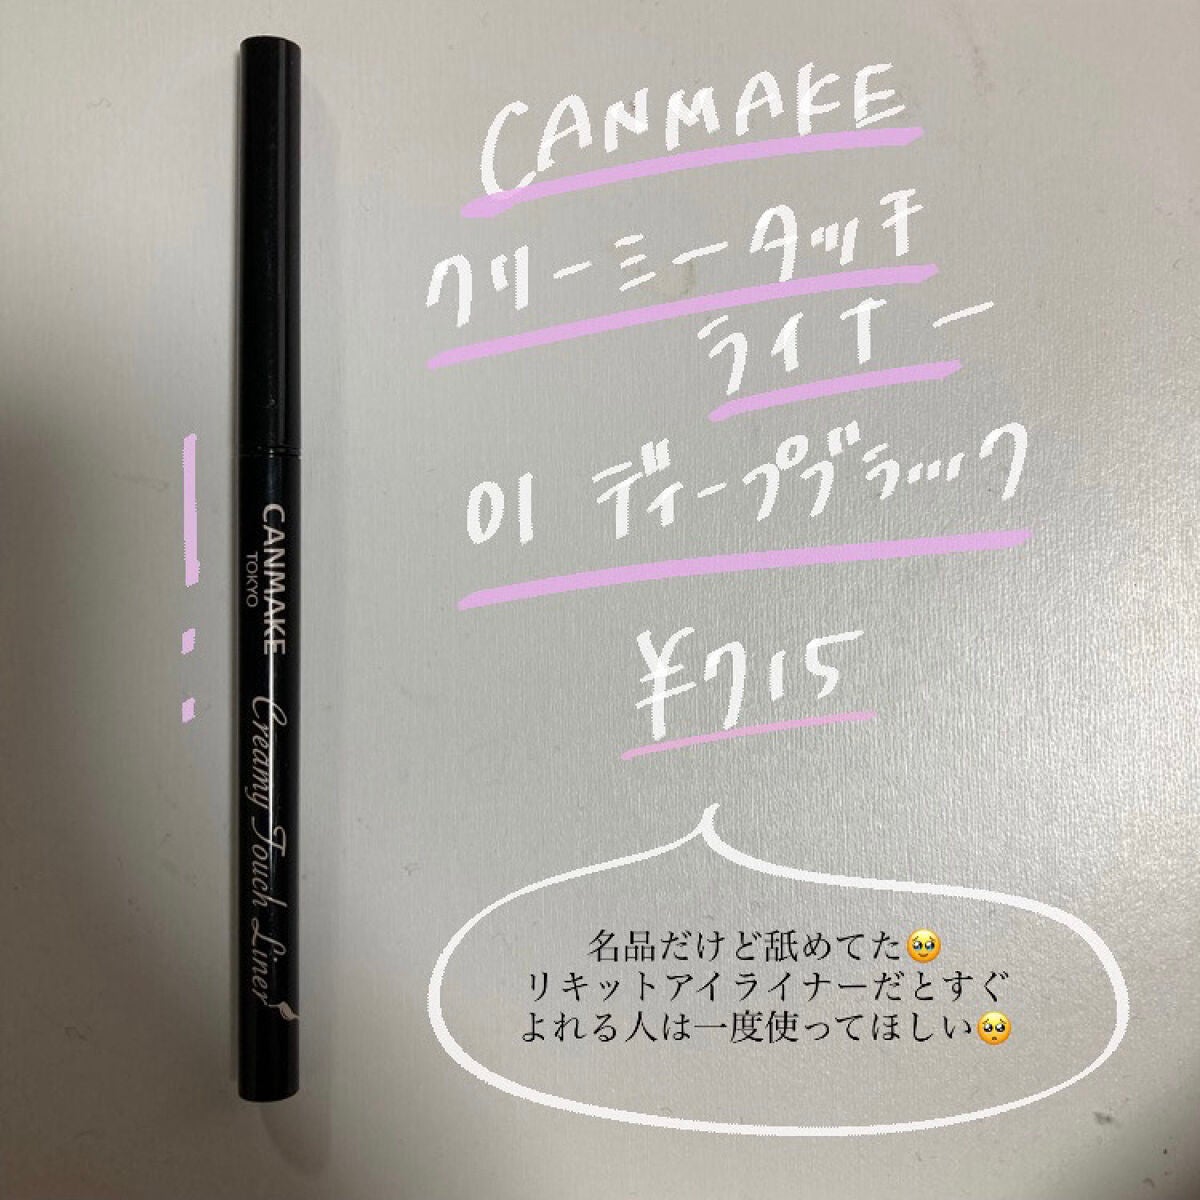 CANMAKE
クリーミータッチ
ライナー
01 ディープブラック
¥715
CANMAKE
TOKYO
Creamy Touch Liner
名品だけど舐めてた🥹
リキットアイライナーだとすぐ
よれる人は一度使ってほしい🥺